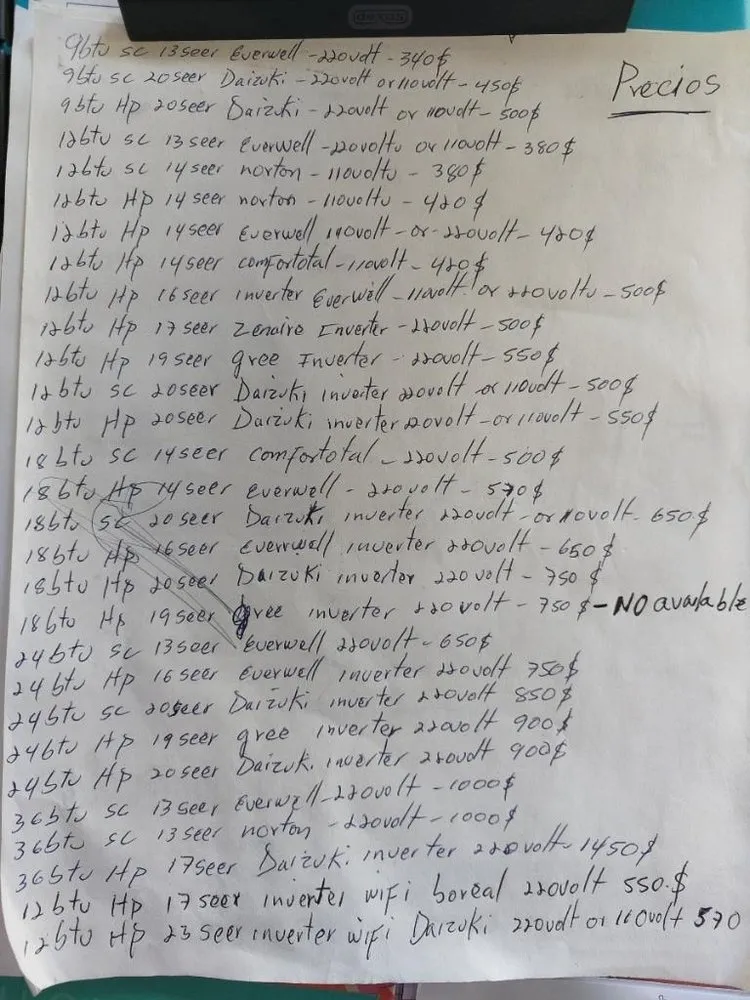 Precios
9btu sc 13seer Everwell - 220volt - 340$
9btu sc 20seer Daizuki - 220volt or 110volt - 450$
9btu Hp 20seer Daizuki - 220volt or 110volt - 500$
12btu sc 13seer Everwell - 220voltu or 110volt - 380$
12btu sc 14seer norton - 110voltu - 380$
12btu Hp 14seer norton - 110voltu - 420$
12btu Hp 14seer Everwell 110volt - or - 220volt - 420$
12btu Hp 14seer comfortotal - 110volt - 420$
12btu Hp 16seer inverter Everwell - 110volt or 220voltu - 500$
12btu Hp 17seer Zenaire Inverter - 220volt - 500$
12btu Hp 19seer gree Inverter - 220volt - 550$
12btu sc 20seer Daizuki inverter 220volt or 110volt - 500$
12btu Hp 20seer Daizuki inverter 220volt - or 110volt - 550$
18btu sc 14seer comfortotal - 220volt - 500$
18btu Hp 14seer Everwell - 220volt - 570$
18btu sc 20seer Daizuki inverter 220volt - or 110volt - 650$
18btu Hp 16seer Everrwell inverter 220volt - 650$
18btu Hp 20seer Daizuki inverter 220volt - 750$
18btu Hp 19seer gree inverter 220volt - 750$ - NO available
24btu sc 13seer Everwell 220volt - 650$
24btu Hp 16seer Everwell inverter 220volt 750$
24btu sc 20seer Daizuki inverter 220volt 850$
24btu Hp 19seer gree inverter 220volt 900$
24btu Hp 20seer Daizuki inverter 220volt 900$
36btu sc 13seer Everwell - 220volt - 1000$
36btu sc 13seer norton - 220volt - 1000$
36btu Hp 17seer Daizuki inverter 220volt - 1450$
12btu Hp 17seer inverter wifi boreal 220volt 550.$
12btu Hp 23seer inverter wifi Daizuki 220volt or 110volt 570